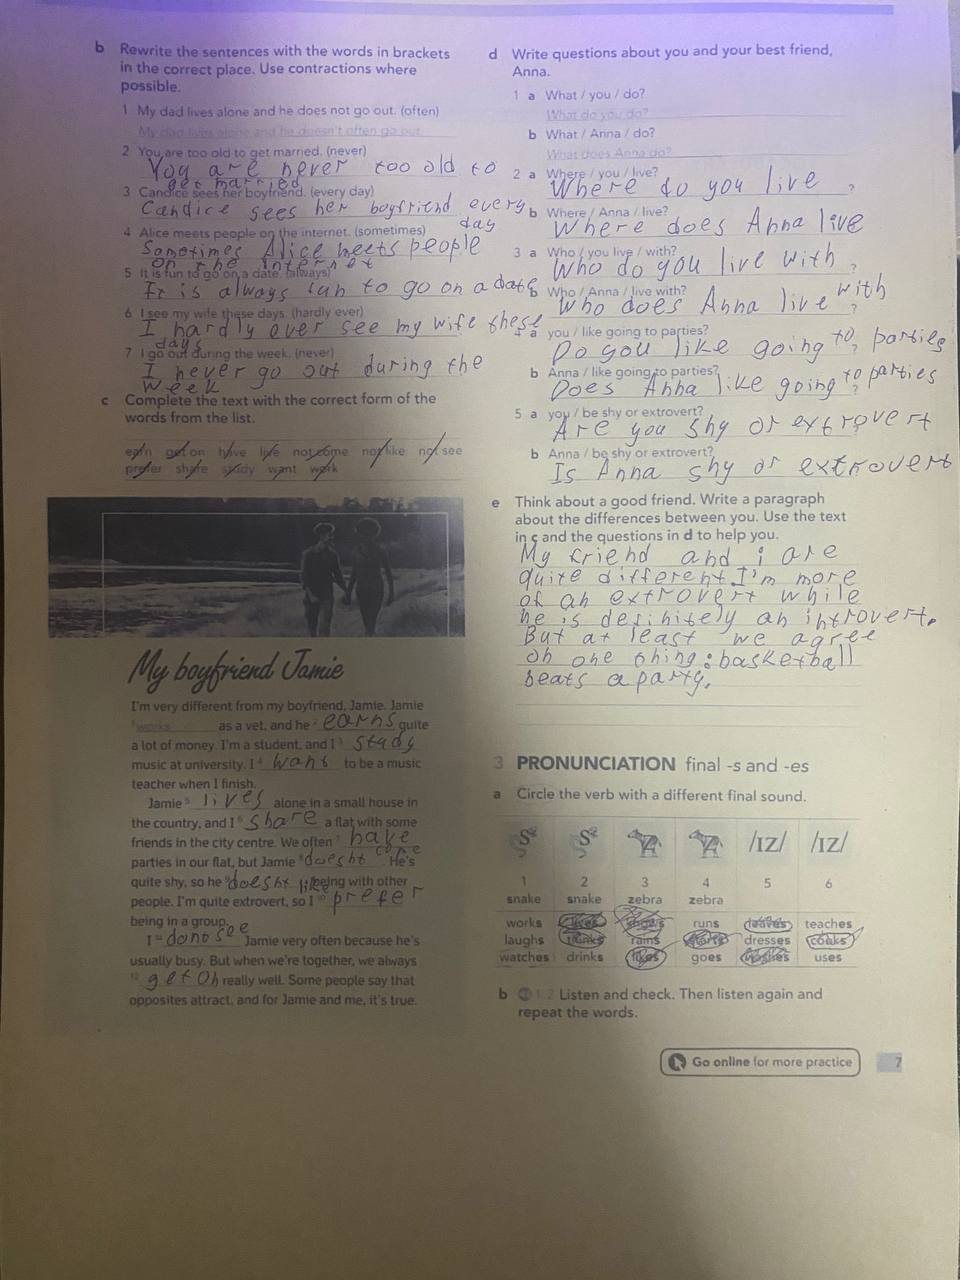 b Rewrite the sentences with the words in brackets
in the correct place. Use contractions where
possible.
1 My dad lives alone and he does not go out. (often)
My dad lives alone and he doesn't often go out.
2 You are too old to get married. (never)
You are never too old to
get married
3 Candice sees her boyfriend. (every day)
Candice sees her boyfriend every
day
4 Alice meets people on the internet. (sometimes)
Sometimes Alice meets people
on the internet
5 It is fun to go on a date. (always)
It is always fun to go on a date
6 I see my wife these days. (hardly ever)
I hardly ever see my wife these
days
7 I go out during the week. (never)
I never go out during the
week
c Complete the text with the correct form of the
words from the list.
earn get on have live not come not like not see
prefer share study want work
My boyfriend Jamie
I'm very different from my boyfriend, Jamie. Jamie
1 works as a vet, and he 2 earns quite
a lot of money. I'm a student, and I 3 study
music at university. I 4 want to be a music
teacher when I finish.
Jamie 5 lives alone in a small house in
the country, and I 6 share a flat with some
friends in the city centre. We often 7 have
parties in our flat, but Jamie 8 doesnt come. He's
quite shy, so he 9 doesnt like being with other
people. I'm quite extrovert, so I 10 prefer
being in a group.
I 11 dont see Jamie very often because he's
usually busy. But when we're together, we always
12 get on really well. Some people say that
opposites attract, and for Jamie and me, it's true.
d Write questions about you and your best friend,
Anna.
1 a What / you / do?
What do you do?
b What / Anna / do?
What does Anna do?
2 a Where / you / live?
Where do you live ?
b Where / Anna / live?
Where does Anna live
3 a Who / you live / with?
Who do you live with ?
b Who / Anna / live with?
Who does Anna live with ?
a you / like going to parties?
Do you like going to parties ?
b Anna / like going to parties?
Does Anna like going to parties ?
5 a you / be shy or extrovert?
Are you shy or extrovert ?
b Anna / be shy or extrovert?
Is Anna shy or extrovert
e Think about a good friend. Write a paragraph
about the differences between you. Use the text
in c and the questions in d to help you.
My friend and i are
quite different. I'm more
of an extrovert while
he is definitely an introvert.
But at least we agree
on one thing: basketball
beats a party.
3 PRONUNCIATION final -s and -es
a Circle the verb with a different final sound.
/ɪz/ /ɪz/
1 2 3 4 5 6
snake snake zebra zebra
works lives shows runs leaves teaches
laughs thinks rains starts dresses cooks
watches drinks likes goes washes uses
b 1.2 Listen and check. Then listen again and
repeat the words.
Go online for more practice 7